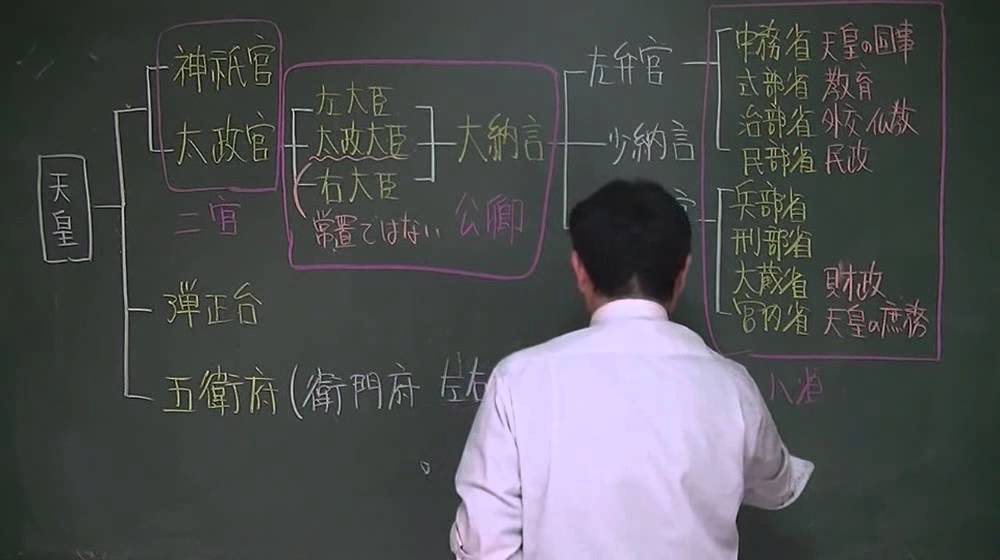 天皇
神祇官
太政官
二官
弾正台
五衛府(衛門府 左右
左大臣
太政大臣
右大臣
常置ではない
大納言
公卿
左弁官
少納言
官
中務省 天皇の国事
式部省 教育
治部省 外交/仏教
民部省 民政
兵部省
刑部省
大蔵省 財政
宮内省 天皇の庶務
八省